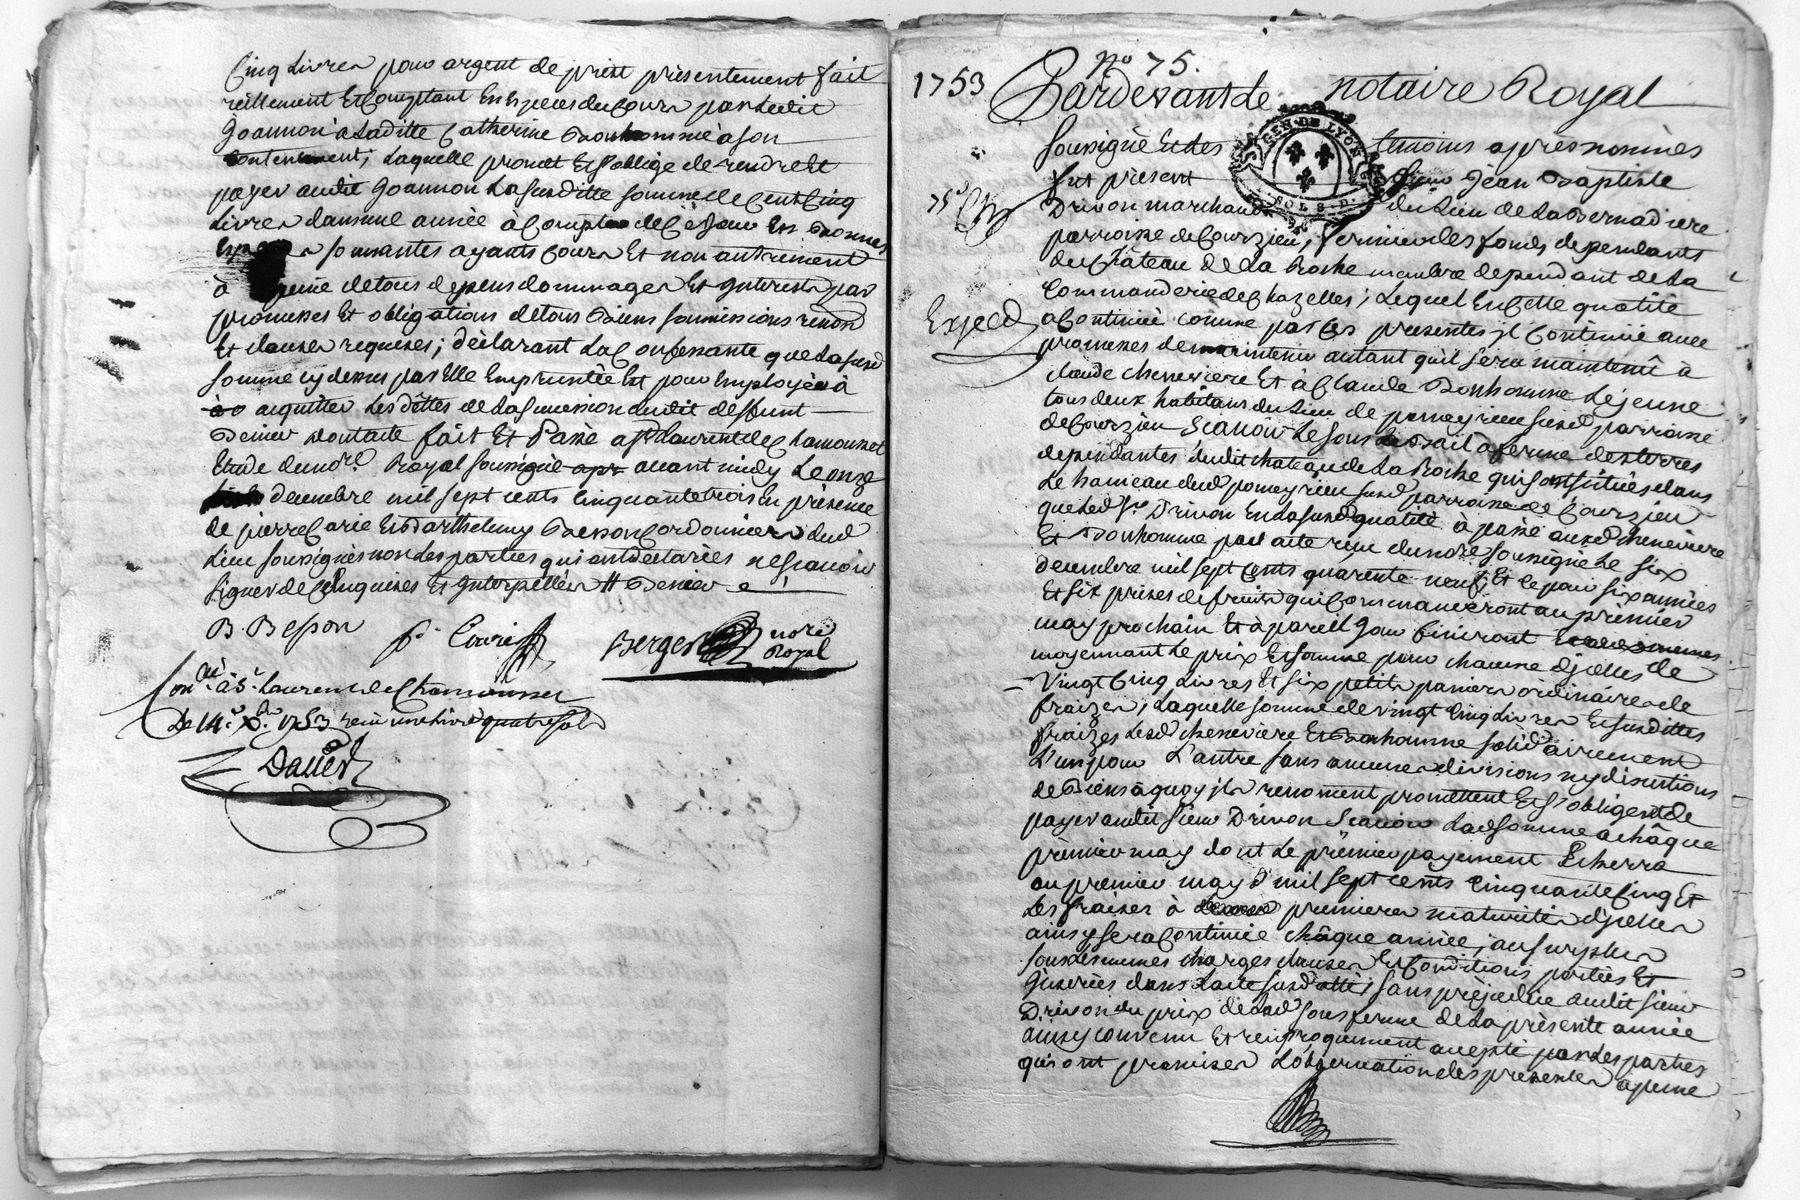 Cinq Livres pour argent de prest présentement fait
réellement Et Comptant En Especes du Cours par Ledit
Goannon à Laditte Catherine Bonhomme à son
Contentement; Laquelle promet Et s'oblige de rendre Et
payer audit Goannon La susditte somme de Cent Cinq
Livres dans une année à Compter de Ce Jour En Bonnes
Espe s sonnantes ayants Cours Et non autrement
à peine de tous depens dommages Et Interests par
promesses Et obligations de tous Biens soumissions renond
Et clauses requises; déclarant La Confessante que La susd
somme cy dessus par Elle Empruntée Est pour Employer à
acquitter Les dettes de La succession dudit deffunt
Denier dont acte fait Et Passé a St Laurent de Chamousset
Etude du nore Royal soussigné avant midy Le onze
decembre mil sept cents Cinquante trois En présence
de pierre Carie Et Barthelemy Besson Cordonniers dud
Lieu soussignés non Les parties qui ont declarées ne scavoir
signer de Ce Enquises Et Interpellées # Denier
B. Besson
p. Carie
Berger nore
Royal
Conlé à St Laurent de Chamousset
Le 14e Xbre 1753 reçu une livre quatre sols
Daller
No 75.
1753 Pardevant Le notaire Royal
Soussigné Et des témoins après nommés
GEN. DE LYON
SOLS D.
fut présent Sieur Jean Baptiste
Drivon marchand du Lieu de La Bernadiere
parroisse de Courzieu, fermier des fonds dependants
du Château de La Roche membre dependant de La
Commanderie de Chazelles; Lequel En Cette qualité
Exped
a Continué comme par Ces presentes il Continue avec
promesses de maintenir autant qu'il sera maintenû à
claude cheneviere Et à Claude Bonhomme Le jeune
tous deux habitans du Lieu de pomeyrieu susd parroisse
de Courzieu Scavoir Le sous Bail a ferme des terres
dependantes dudit chateau de La Roche qui sont situées dans
Le hameau dud pomeyrieu susd parroisse de Courzieu
que Led Sr Drivon En La susd qualité a passé auxd cheneviere
Et Bonhomme par acte reçu du nore soussigné Le six
decembre mil sept Cents quarente neuf, Et Ce pour six années
Et six prises de fruits qui Commanceront au premier
may prochain Et à pareil Jour finiront
moyennant Le prix Et somme pour chacune d'jcelles de
Vingt Cinq Livres Et six petits paniers ordinaires de
fraizes; Laquelle somme de vingt Cinq Livres Et susdittes
fraizes Lesd cheneviere Et Bonhomme solidairement
L'un pour L'autre sans aucunes divisions ny discutions
de Biens à quoy ils renoncent promettent Et s'obligent de
payer audit sieur Drivon Scavoir Lad somme a châque
premier may dont Le premier payement Echerra
au premier may mil sept cents Cinquante Cinq Et
Les fraizes à premiere maturité d'jcelles
ainsy sera Continué châque année; au surplus
sous Les mêmes charges clauses Et Conditions portées Et
Inserées dans Lacte susd , sans préjudice audit sieur
Drivon du prix de Lad sous ferme de La présente année
ainsy convenu Et reciproquement accepté par Les parties
qui ont promises L'observation des presentes a peine